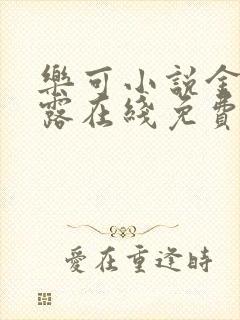 樂可小説金
露在綫免費
愛在重逢時